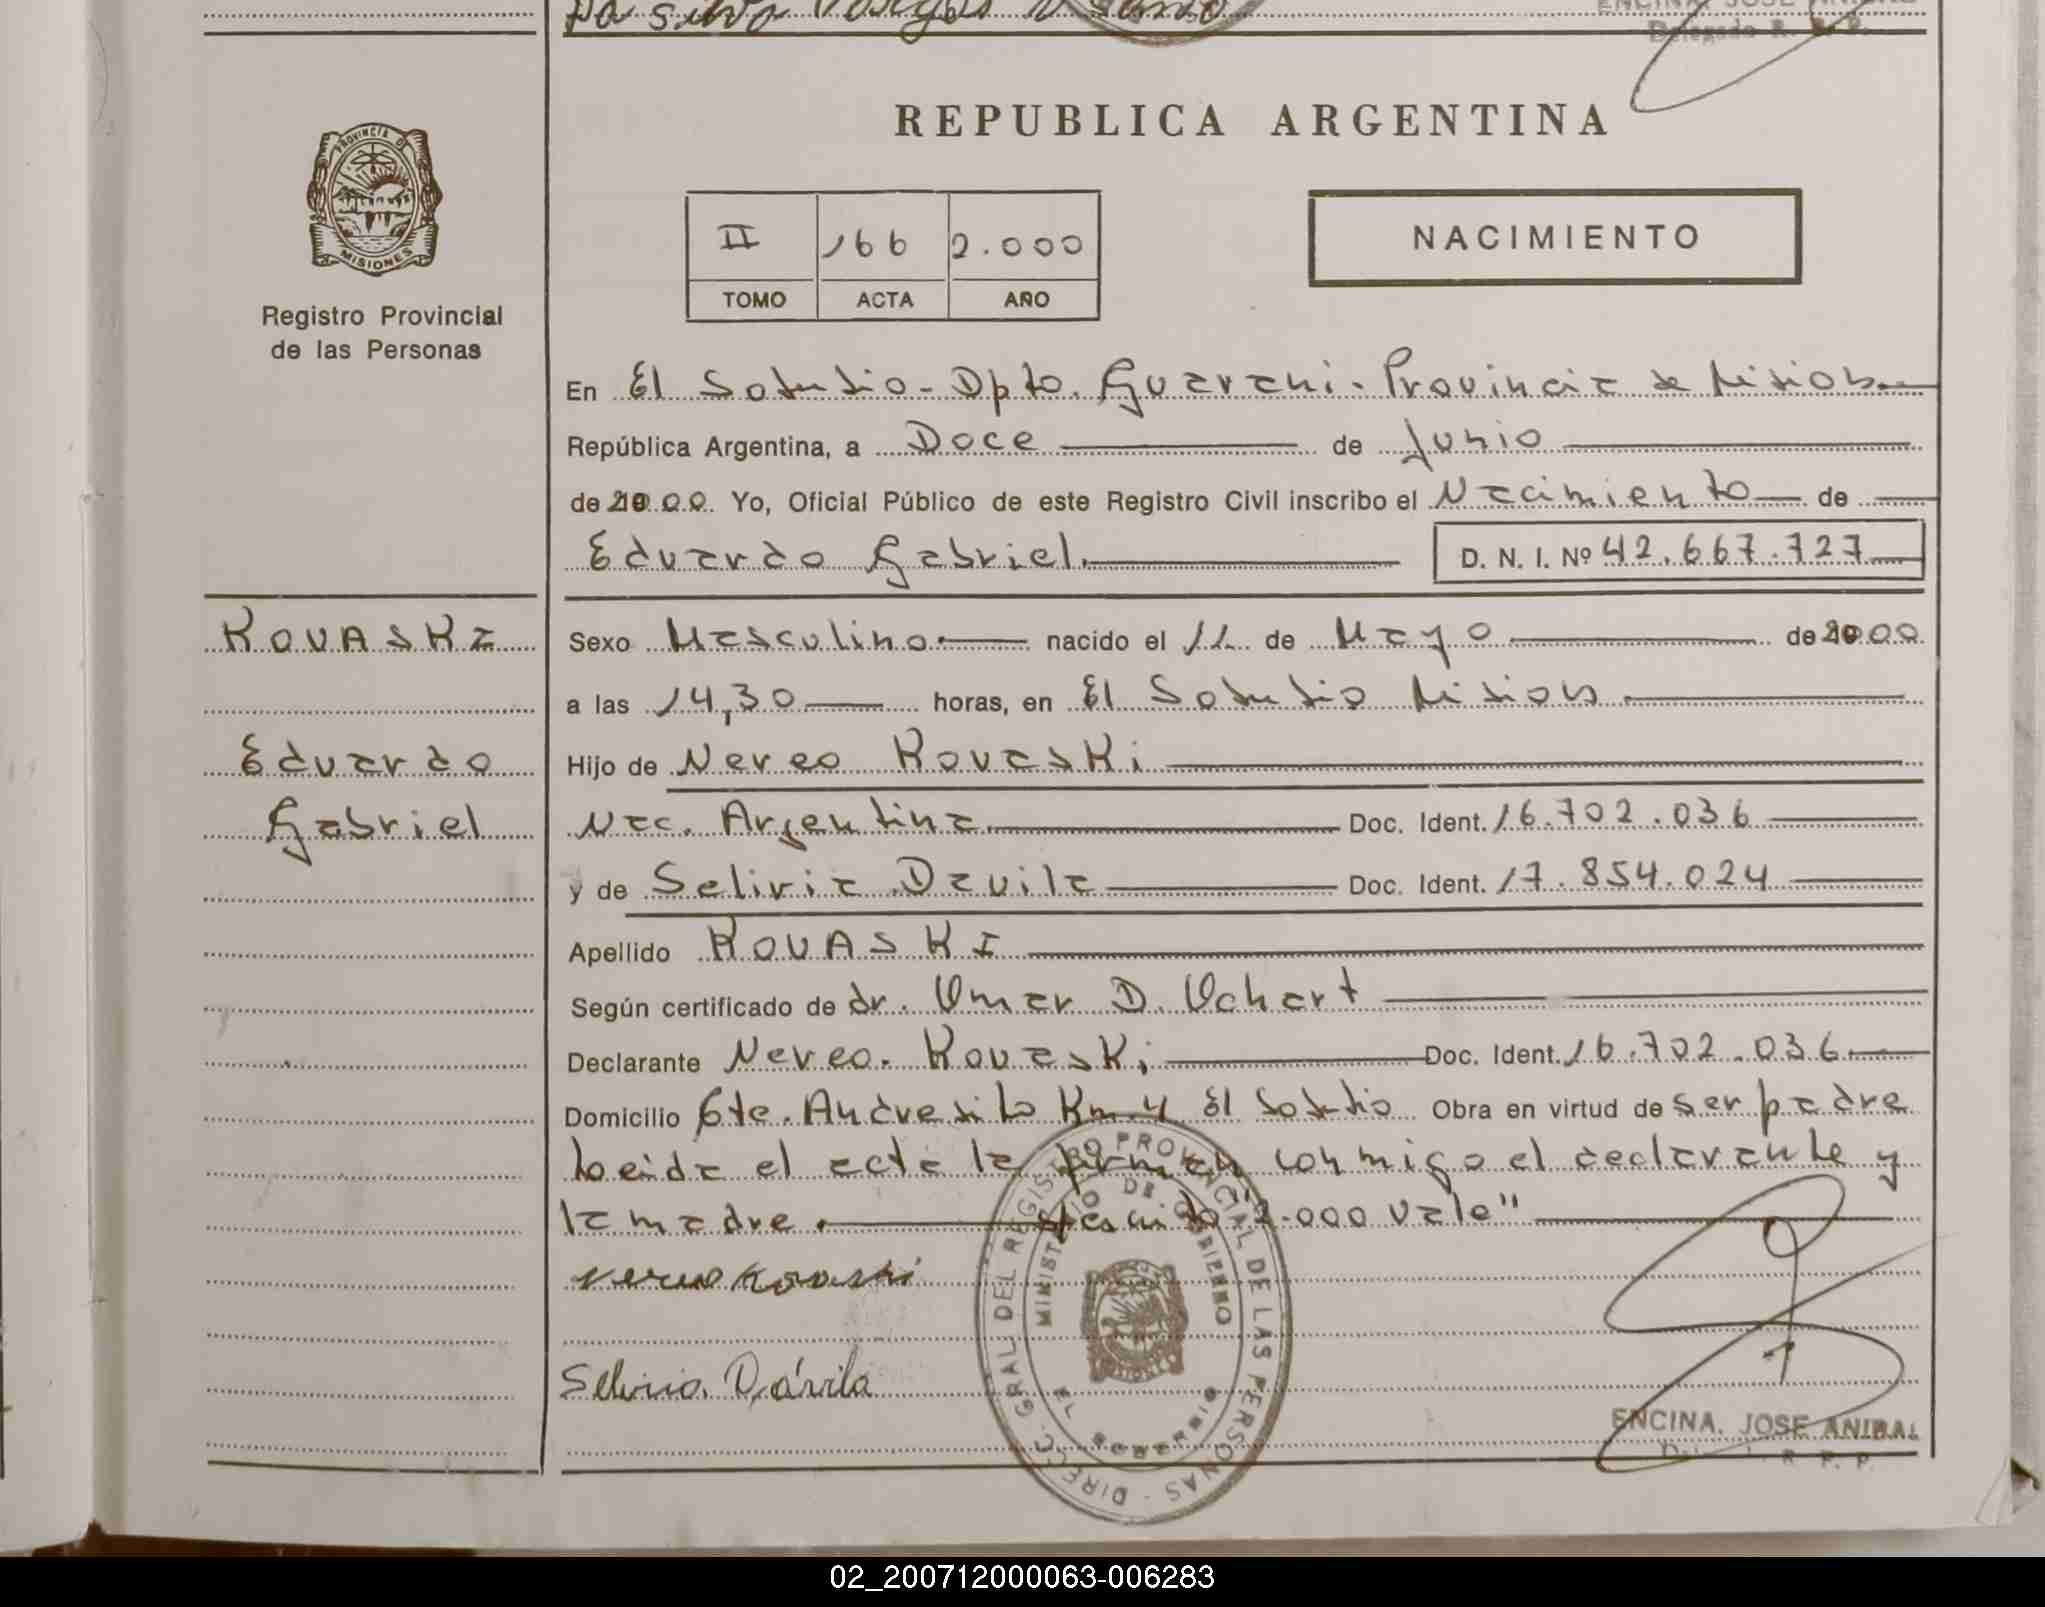 Da Silva Vargas
ENCINA, JOSE ANIBAL
Delegado R. P. P.
PROVINCIA DE
MISIONES
Registro Provincial
de las Personas
REPUBLICA ARGENTINA
II 166 2.000
TOMO ACTA AÑO
NACIMIENTO
En El Soberbio - Dpto. Guarani - Provincia de Misiones
República Argentina, a Doce de Junio
de 2000 Yo, Oficial Público de este Registro Civil inscribo el Nacimiento de
Eduardo Gabriel. D. N. I. Nº 42.667.727
KOVASKI
Eduardo
Gabriel
Sexo Masculino nacido el 11 de Mayo de 2000
a las 14,30 horas, en El Soberbio Misiones
Hijo de Nereo Kovaski
Nac. Argentina Doc. Ident. 16.702.036
y de Selivia Davila Doc. Ident. 17.854.024
Apellido KOVASKI
Según certificado de dr. Omar D. Ochart
Declarante Nereo. Kovaski Doc. Ident. 16.702.036
Domicilio Cte. Andresito Km. 4 El Soberbio Obra en virtud de ser padre
Leida el acta la firman conmigo el declarante y
la madre. 2.000 vale"
Nereo Kovaski
Selivia Dávila
DIRECC. GRAL DEL REGISTRO PROVINCIAL DE LAS PERSONAS -
MINISTERIO DE GOBIERNO
EL SOBERBIO
MISIONES
ENCINA, JOSE ANIBAL
02_200712000063-006283